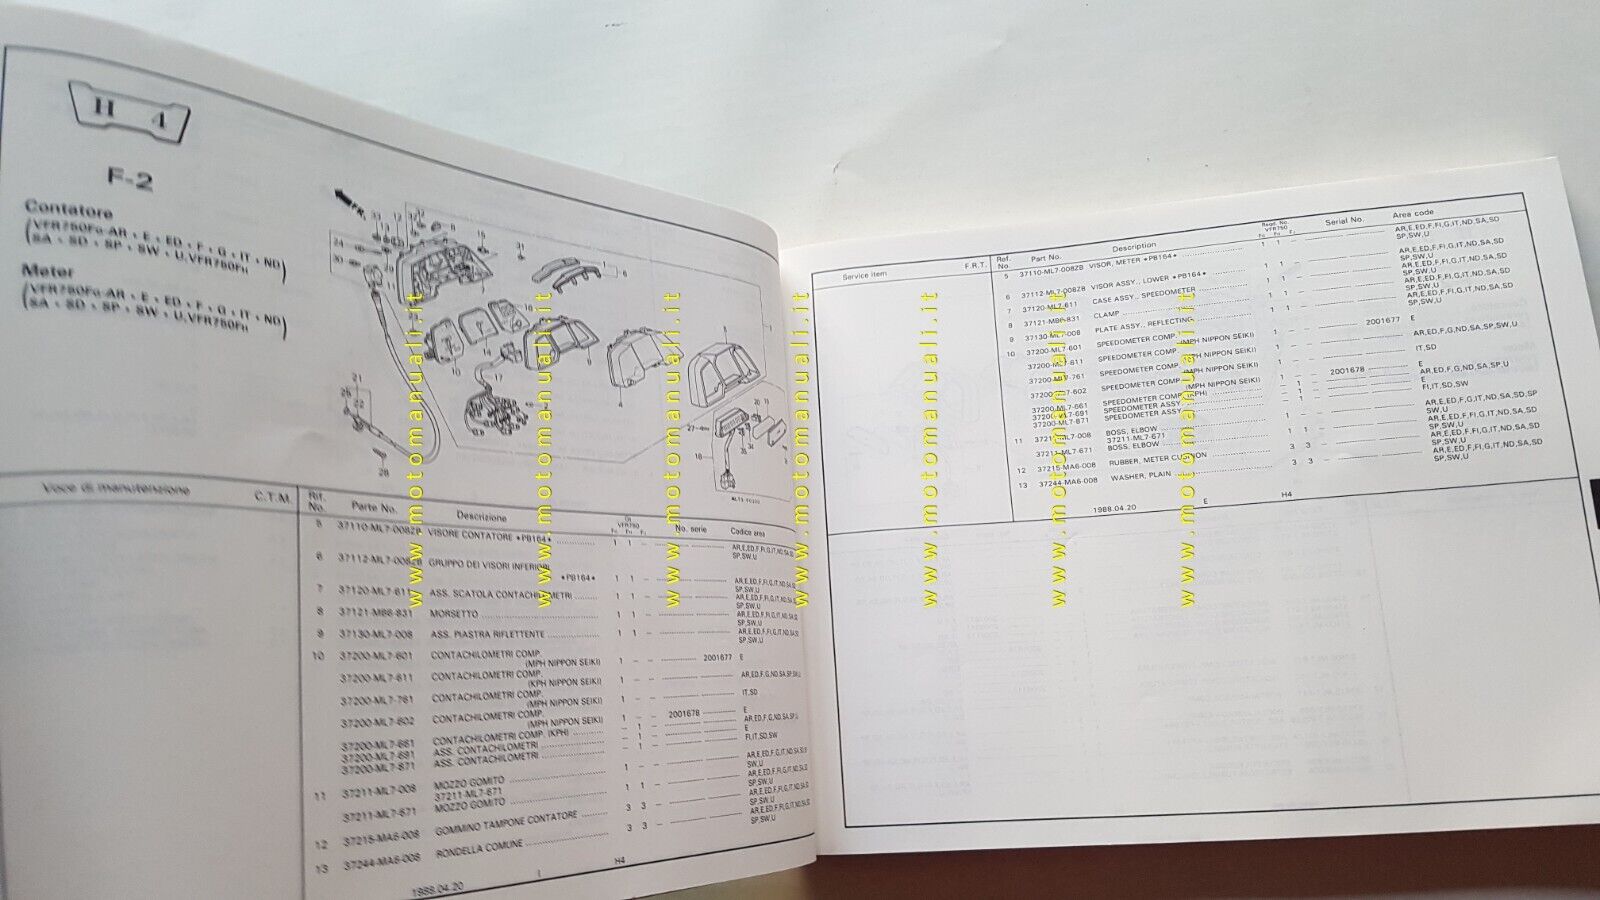 H 4
F-2
Contatore
(VFR750FG-AR • E • ED • F • G • IT • ND
SA • SD • SP • SW • U,VFR750FH)
Meter
(VFR750FG-AR • E • ED • F • G • IT • ND
SA • SD • SP • SW • U,VFR750FH)
Voce di manutenzione C.T.M. Rif. No. Parte No. Descrizione Qt VFR750 No. serie Codice area
5 37110-ML7-008ZB VISORE CONTATORE *PB164* 1 1 – AR,E,ED,F,FI,G,IT,ND,SA,SD
SP,SW,U
6 37112-ML7-008ZB GRUPPO DEI VISORI INFERIORI
*PB164* 1 1 – AR,E,ED,F,FI,G,IT,ND,SA,SD
SP,SW,U
7 37120-ML7-611 ASS. SCATOLA CONTACHILOMETRI 1 1 – AR,E,ED,F,FI,G,IT,ND,SA,SD
SP,SW,U
8 37121-MB6-831 MORSETTO 1 1 – AR,E,ED,F,FI,G,IT,ND,SA,SD
SP,SW,U
9 37130-ML7-008 ASS. PIASTRA RIFLETTENTE 1 1 – AR,E,ED,F,FI,G,IT,ND,SA,SD
SP,SW,U
10 37200-ML7-601 CONTACHILOMETRI COMP.
(MPH NIPPON SEIKI) 1 – – 2001677 E
37200-ML7-611 CONTACHILOMETRI COMP.
(KPH NIPPON SEIKI) 1 – – AR,ED,F,G,ND,SA,SP,SW,U
37200-ML7-761 CONTACHILOMETRI COMP.
(MPH NIPPON SEIKI) 1 – – IT,SD
37200-ML7-602 CONTACHILOMETRI COMP.
(MPH NIPPON SEIKI) 1 – – 2001678 E
37200-ML7-661 CONTACHILOMETRI COMP. (KPH) – 1 – AR,ED,F,G,ND,SA,SP,U
37200-ML7-691 ASS. CONTACHILOMETRI – 1 – E
37200-ML7-871 ASS. CONTACHILOMETRI – 1 – FI,IT,SD,SW
11 37211-ML7-008 MOZZO GOMITO 1 – AR,E,ED,F,G,IT,ND,SA,SD,SP
SW,U
37211-ML7-671
37211-ML7-671 MOZZO GOMITO 1 1 – AR,E,ED,F,FI,G,IT,ND,SA,SD
SP,SW,U
12 37215-MA6-008 GOMMINO TAMPONE CONTATORE 3 3 – AR,E,ED,F,FI,G,IT,ND,SA,SD
SP,SW,U
13 37244-MA6-008 RONDELLA COMUNE 3 3 – AR,E,ED,F,FI,G,IT,ND,SA,SD
SP,SW,U
1988.04.20 I H4
Service item F.R.T. Ref. No. Part No. Description Reqd. No. VFR750 Serial No. Area code
5 37110-ML7-008ZB VISOR, METER *PB164* 1 1 – AR,E,ED,F,FI,G,IT,ND,SA,SD
SP,SW,U
6 37112-ML7-008ZB VISOR ASSY., LOWER *PB164* 1 1 – AR,E,ED,F,FI,G,IT,ND,SA,SD
SP,SW,U
7 37120-ML7-611 CASE ASSY., SPEEDOMETER 1 1 – AR,E,ED,F,FI,G,IT,ND,SA,SD
SP,SW,U
8 37121-MB6-831 CLAMP 1 1 – AR,E,ED,F,FI,G,IT,ND,SA,SD
SP,SW,U
9 37130-ML7-008 PLATE ASSY., REFLECTING 1 1 – AR,E,ED,F,FI,G,IT,ND,SA,SD
SP,SW,U
10 37200-ML7-601 SPEEDOMETER COMP. (MPH NIPPON SEIKI) 1 – – 2001677 E
37200-ML7-611 SPEEDOMETER COMP. 1 – – AR,ED,F,G,ND,SA,SP,SW,U
37200-ML7-761 SPEEDOMETER COMP. (MPH NIPPON SEIKI) 1 – – IT,SD
37200-ML7-602 SPEEDOMETER COMP. (MPH NIPPON SEIKI) 1 – – 2001678 E
37200-ML7-661 SPEEDOMETER COMP. (KPH) – 1 – AR,ED,F,G,ND,SA,SP,U
37200-ML7-691 SPEEDOMETER ASSY. – 1 – E
37200-ML7-871 SPEEDOMETER ASSY. – 1 – FI,IT,SD,SW
11 37211-ML7-008 BOSS, ELBOW 1 – AR,E,ED,F,G,IT,ND,SA,SD,SP
SW,U
37211-ML7-671
37211-ML7-671 BOSS, ELBOW 1 1 – AR,E,ED,F,FI,G,IT,ND,SA,SD
SP,SW,U
12 37215-MA6-008 RUBBER, METER CUSHION 3 3 – AR,E,ED,F,FI,G,IT,ND,SA,SD
SP,SW,U
13 37244-MA6-008 WASHER, PLAIN 3 3 – AR,E,ED,F,FI,G,IT,ND,SA,SD
SP,SW,U
1988.04.20 E H4
www.motomanuali.it
www.motomanuali.it
www.motomanuali.it
www.motomanuali.it
www.motomanuali.it
www.motomanuali.it
www.motomanuali.it